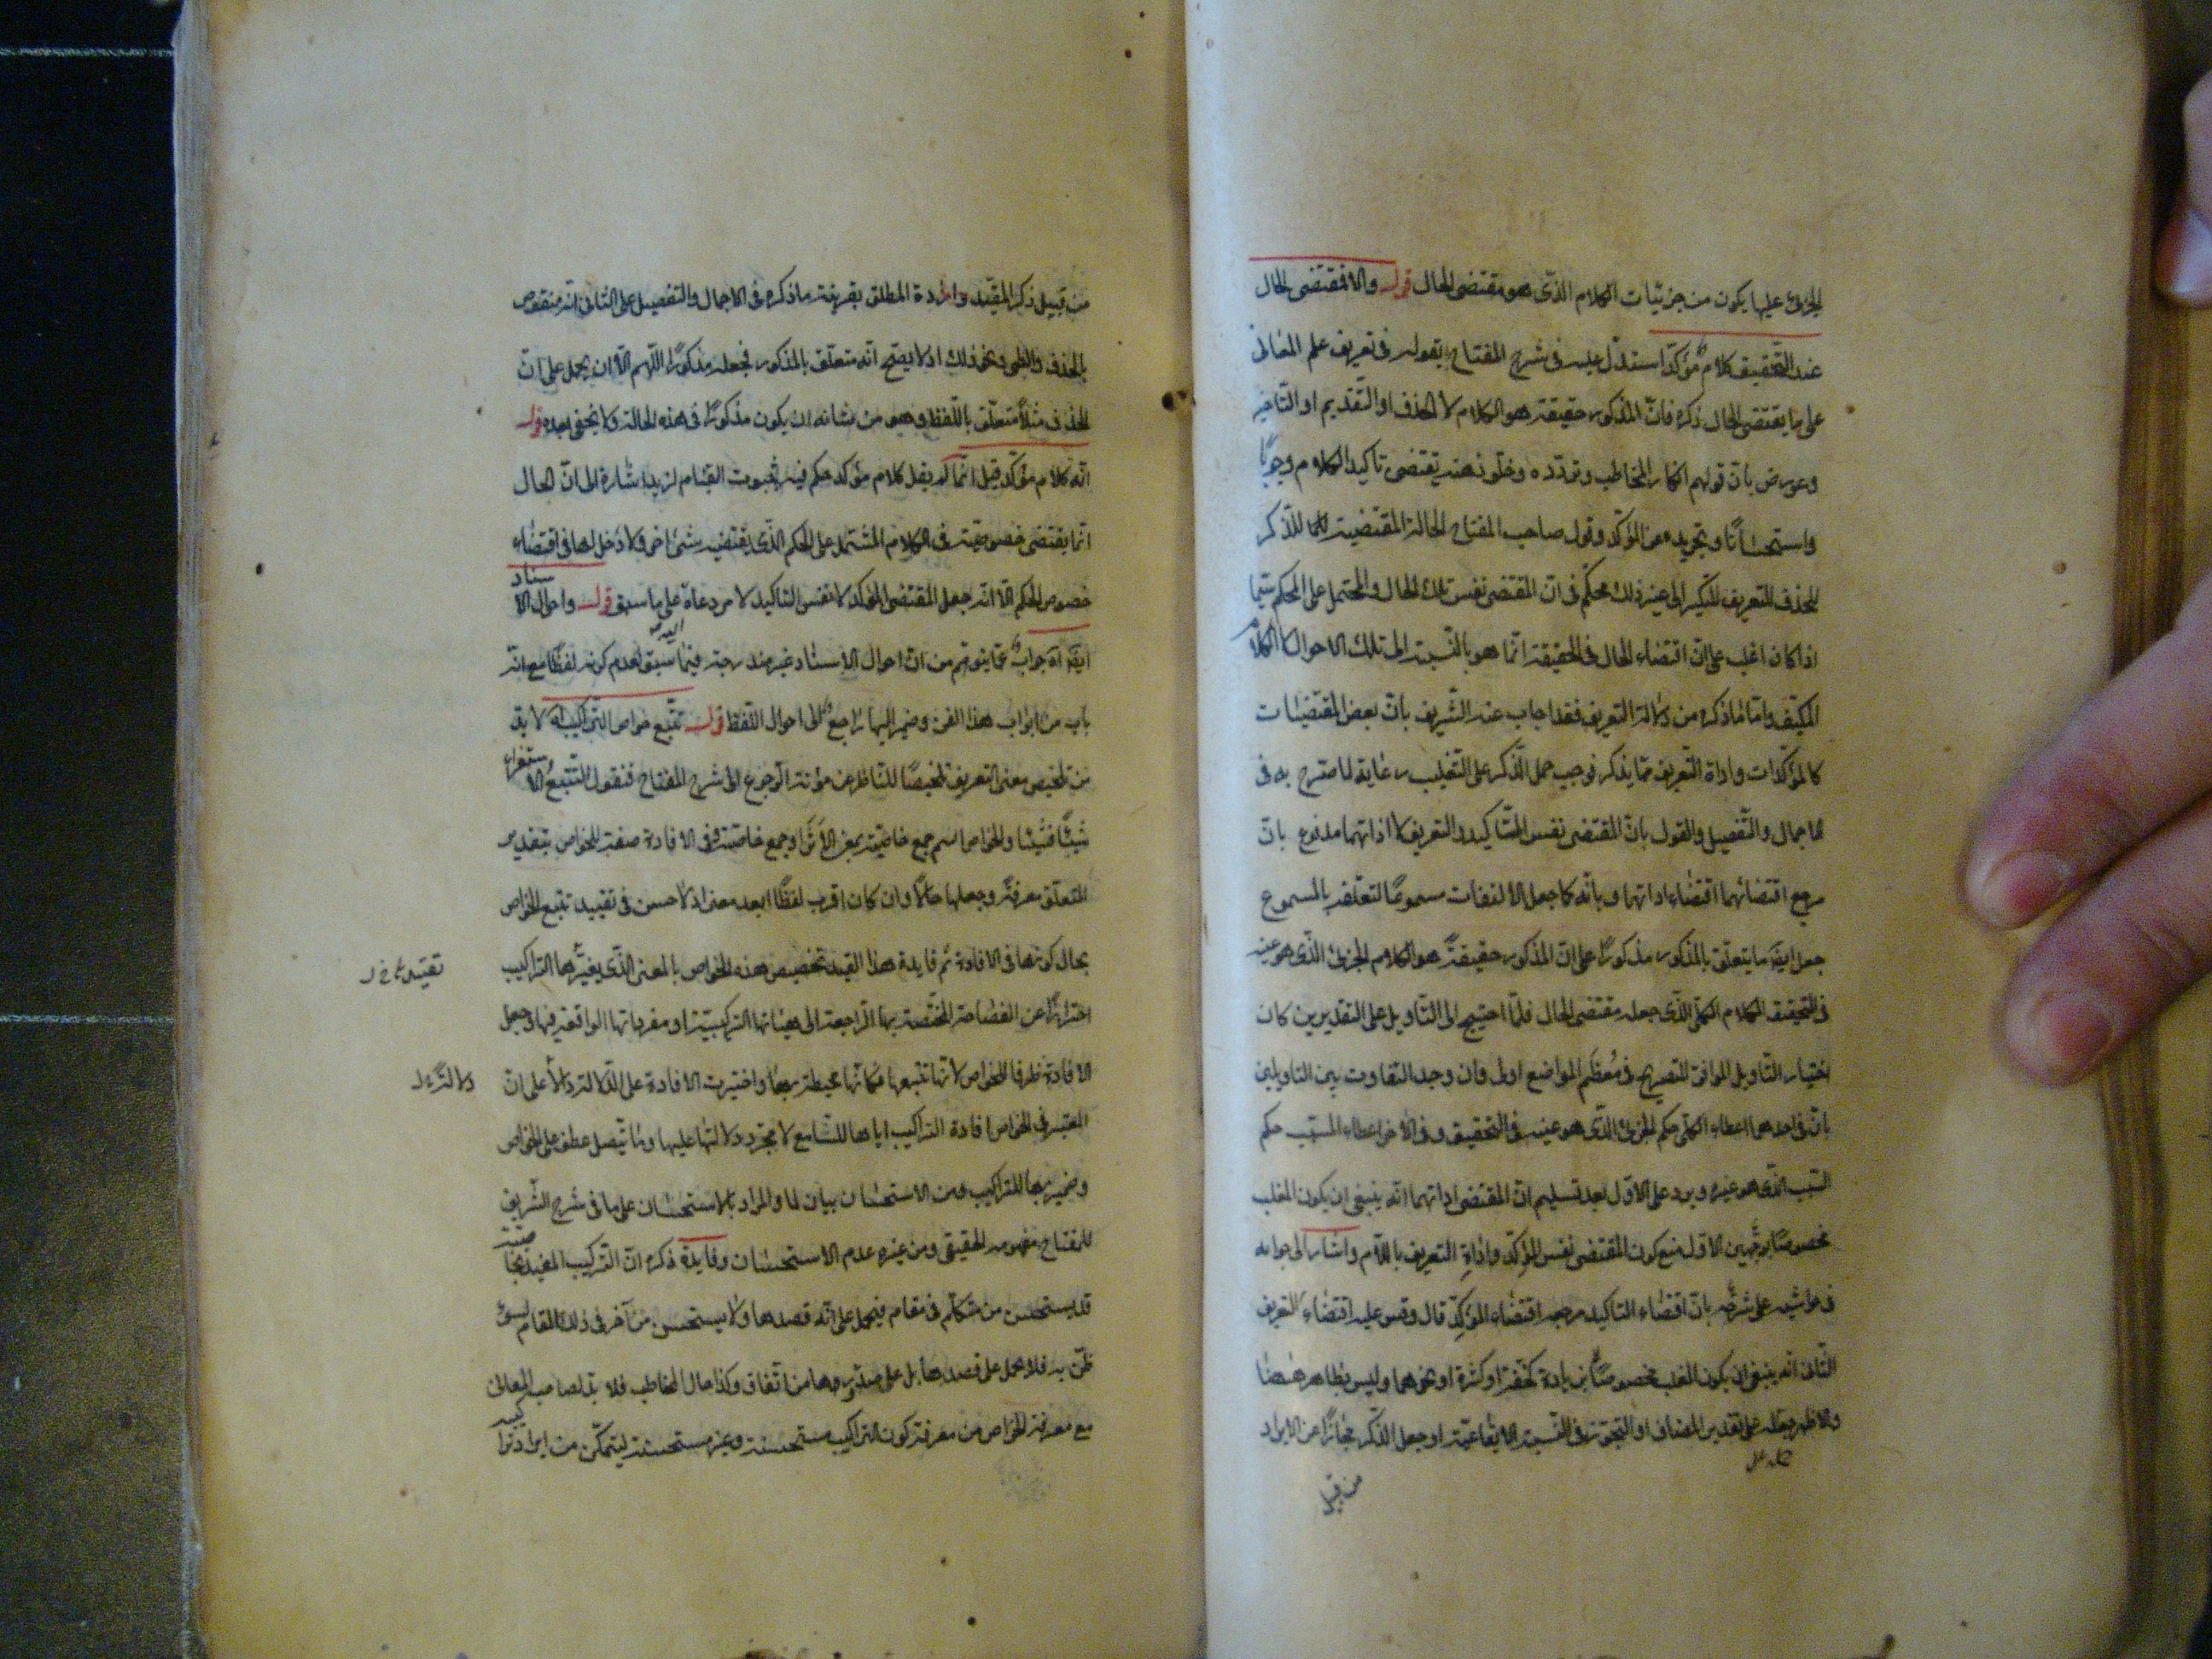 الجزئى عليها يكون من جزئيات الكلام الذى هو مقتضى الحال قوله والا فمقتضى الحال
عند التحقيق كلام مؤكد استدل عليه فى شرح المفتاح بقوله فى تعريف علم المعانى
على ما يقتضى الحال ذكره فان المذكور حقيقة هو الكلام لا الحذف او التقديم او التاخير
وعورض بان قولهم انكار المخاطب وتردده وخلو ذهنه يقتضى تاكيد الكلام وجوبًا
واستحسانًا وتجريده عن المؤكد وقول صاحب المفتاح الحالة المقتضية للذكر
للحذف للتعريف للتنكير الى غير ذلك محكم فى ان المقتضى نفس تلك الحال والمحتمل على المحكم سيما
اذا كان اغلب على ان اقتضاء الحال فى الحقيقة انما هو بالنسبة الى تلك الاحوال لا الكلام
المكيف واما ما ذكره من دلالة التعريف فقد اجاب عنه الشريف بان بعض المقتضيات
كالمؤكدات واداة التعريف مما يذكر فوجب حمل الذكر على التغليب رعاية لما صرح به فى
الاجمال والتفصيل والقول بان المقتضى نفس التاكيد والتعريف لا اداتهما مدفوع بان
مرجع اقتضائهما اقتضاء اداتهما وبانه كما جعل الالتفات مسموعًا لتعلقه بالمسموع
جعل ايضا ما يتعلق بالمذكور مذكورًا على ان المذكور حقيقةً هو الكلام الجزئى الذى هو عين
فى التحقيق الكلام الكلى الذى جعله مقتضى الحال فلما احتيج الى التاويل على التقديرين كان
اختيار التاويل الموافق للتصريح فى مُعظَم المواضع اولى وان وجد التفاوت بين التاويلين
بان فى احدهما اعطاء الكلى حكم الجزئى الذى هو عينه فى التحقيق وفى الاخر اعطاء المسبب حكم
السبب الذى هو غيره ويرد على الاول بعد تسليم ان المقتضى اداتهما انه ينبغى ان يكون المغلب
مخصوصًا بوجهين الاول منع كون المقتضى نفس المؤكد واداةِ التعريف باللام واشار الى جوابه
فى حواشيه على شرحه بان اقتضاء التاكيد مرجعه اقتضاء المؤكِد قال وقس عليه اقتضاء التعريف
الثانى انه ينبغى ان يكون المغلب مخصوصًا بزيادة كخفة او كثرة او نحوهما وليس بظاهر ههنا
والاظهر حمله على تقدير المضاف او التجوز فى النسبة الايقاعية او جعل الذكر مجازًا عن الايراد
من قبيل
من قبيل ذكر المقيد وارادة المطلق بقرينة ما ذكره فى الاجمال والتفصيل على الثانى انه منقوض
بالحذف والطى ونحو ذلك اذ لا يصح انه متعلق بالمذكور فجعله مذكورًا اللهم الا ان يحمل على ان
الحذف مثلاً متعلق باللفظ وهو من شانه ان يكون مذكورًا فى هذه الحالة ولا يخفى بعده قوله
انه كلام مؤكد قيل انما لم يقل كلام مؤكد حكم فيه بثبوت القيام لزيد اشارة الى ان الحال
انما يقتضى خصوصية فى الكلام المشتمل على الحكم الذى يقتضيه شئ اخر ولا دخل لها فى اقتضاء
خصوص الحكم الا انه جعل المقتضى المؤكد لا نفس التاكيد على ما سبق قوله واحوال الاسناد
ايضًا اه جواب عما يتوهم من ان احوال الاسناد غير مندرجة فيما سبق لعدم كونه لفظًا مع انه
باب من ابواب هذا الفن وضمير اليها راجع الى احوال اللفظ قوله تتبع خواص التراكيب اه لا بد
من تلخيص معنى التعريف تلخيصًا للناظر عن مؤنة الرجوع الى شرح المفتاح فنقول التتبعُ الاستقراء
شيئًا فشيئا والخواص اسم جمع خاصية بمعنى الاَثَر او جمع خاصة وفى الافادة صفة للخواص بتقدير
المتعلق معرفةً وجعلها حالاً وان كان اقرب لفظًا ابعد معنى اذ لا حسن فى تقييد تتبع الخواص
بحال كونها فى الافادة ثم فايدة هذا القيد تخصيص هذه الخواص بالمعنى الذى يفيدها التراكيب
احترازًا عن الفصاحة المختصة بها الراجعة الى هيئاتها التركيبية او مفرداتها الواقعة فيها وجعل
الافادة ظرفا للخواص لانها تتبعها فكانها محيطة بها واختيرت الافادة على الدلالة دلالاً على ان
المعتبر فى الخواص افادة التراكيب اياها للسامع لا مجرد دلالتها عليها وما يتصل عطف على الخواص
وضمير بها للتراكيب ومن الاستحسان بيان لما والمراد بالاستحسان على ما فى شرح الشريف
للمفتاح مفهومه الحقيقى ومن غيره عدم الاستحسان وفايدة ذكره ان التركيب المفيد بخاصية
قد يستحسن من متكلم فى مقام فيحمل على انه قصدها ولا يستحسن من آخر فى ذلك المقام لسوء
ظن به فلا يحمل على قصدها بل على صدورها من اتفاق وكذا حال المخاطب فلا بد لصاحب المعانى
مع معرفة الخواص من معرفة كون التراكيب مستحسنة وغير مستحسنة ليتمكن من ايراد تراكيب